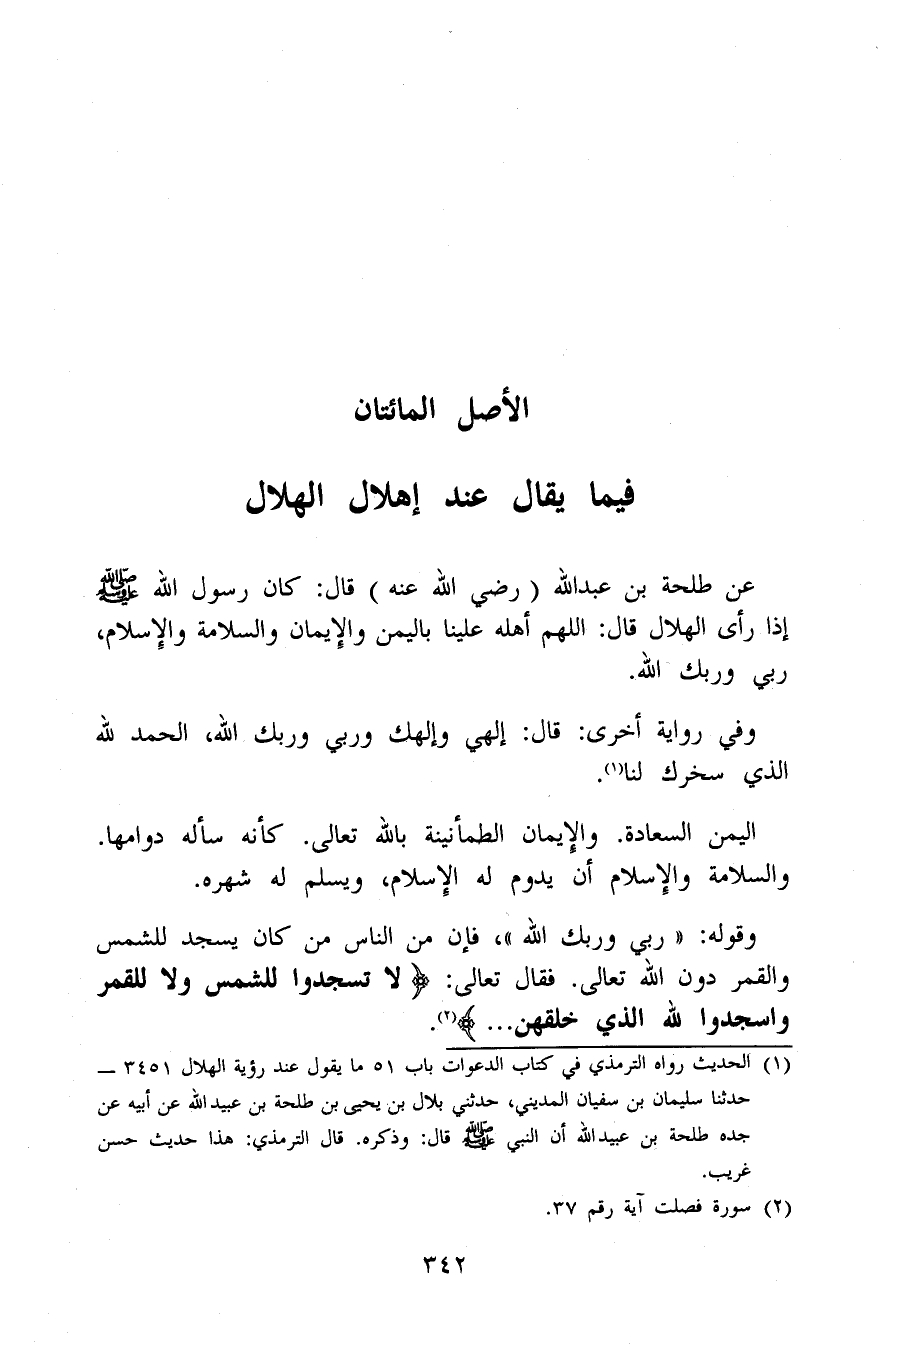 الأصل المائتان
فيما يقال عند إهلال الهلال
عن طلحة بن عبدالله ( رضي الله عنه ) قال: كان رسول الله ﷺ
إذا رأى الهلال قال: اللهم أهله علينا باليمن والإيمان والسلامة والإسلام،
ربي وربك الله.
وفي رواية أخرى: قال: إلهي وإلهك وربي وربك الله، الحمد لله
الذي سخرك لنا(١).
اليمن السعادة. والإيمان الطمأنينة بالله تعالى. كأنه سأله دوامها.
والسلامة والإسلام أن يدوم له الإسلام، ويسلم له شهره.
وقوله: « ربي وربك الله »، فإن من الناس من كان يسجد للشمس
والقمر دون الله تعالى. فقال تعالى: ﴿ لا تسجدوا للشمس ولا للقمر
واسجدوا لله الذي خلقهن... ﴾(٢).
(١) الحديث رواه الترمذي في كتاب الدعوات باب ٥١ ما يقول عند رؤية الهلال ٣٤٥١ —
حدثنا سليمان بن سفيان المديني، حدثني بلال بن يحيى بن طلحة بن عبيدالله عن أبيه عن
جده طلحة بن عبيدالله أن النبي ﷺ قال: وذكره. قال الترمذي: هذا حديث حسن
غريب.
(٢) سورة فصلت آية رقم ٣٧.
٣٤٢